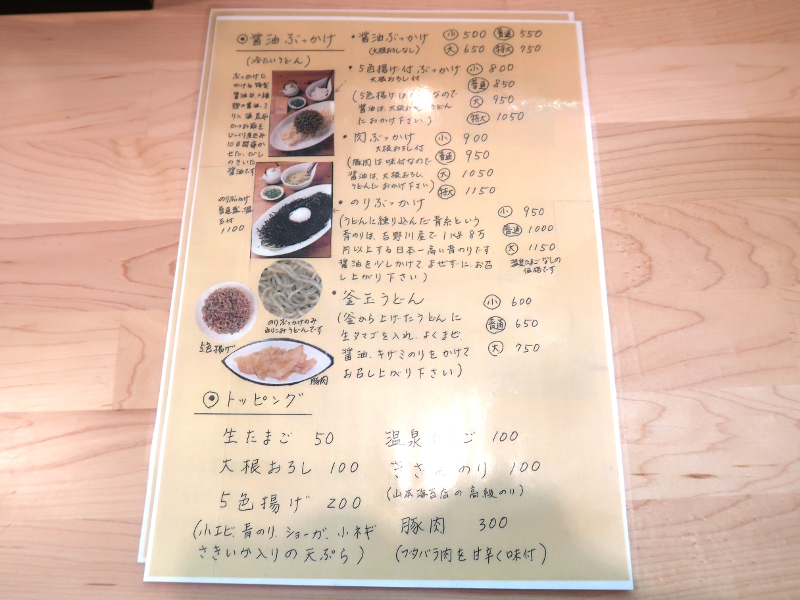 醤油ぶっかけ
(冷たいうどん)
・醤油ぶっかけ 小 500 普通 550
(大根おろしなし) 大 650 特大 750
・5色揚げ付ぶっかけ 小 800
大根おろし付 普通 850
(5色揚げは なので 大 950
醤油は、大根おろし、うどん
におかけ下さい) 特大 1050
・肉ぶっかけ 小 900
大根おろし付 普通 950
(豚肉は味付なので
醤油は、大根おろし、 大 1050
うどんにおかけ下さい) 特大 1150
・のりぶっかけ 小 950
(うどんに練り込んだ青糸という 普通 1000
青のりは、吉野川産で1kg8万
円以上する日本一高い青のりです。 大 1150
醤油を少しかけてまぜずに、お召 温泉たまごなしの
し上がり下さい) 価格です
・釜玉うどん 小 600
(釜から上げたうどんに 普通 650
生タマゴを入れ、よくまぜ、
醤油、キザミのりをかけて 大 750
お召し上がり下さい)
ぶっかけに
かける特製
醤油は、
かつお節を
10日間寝か
せた、だし
のきいた
醤油です
のりぶっかけ
1100
のりぶっかけのみ
5色揚げ
豚肉
トッピング
生たまご 50 温泉 ご 100
大根おろし 100 きざ のり 100
(山本海苔店の高級のり)
5色揚げ 200 豚肉 300
(小エビ、青のり、ショーガ、小ネギ
さきいか入りの天ぷら) (ブタバラ肉を甘辛く味付)